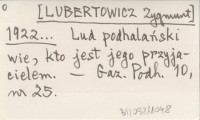 [LUBERTOWICZ Zygmunt]
1922... Lud podhalański
wie, kto jest jego przyja-
cielem. — Gaz. Podh. 10,
nr 25.